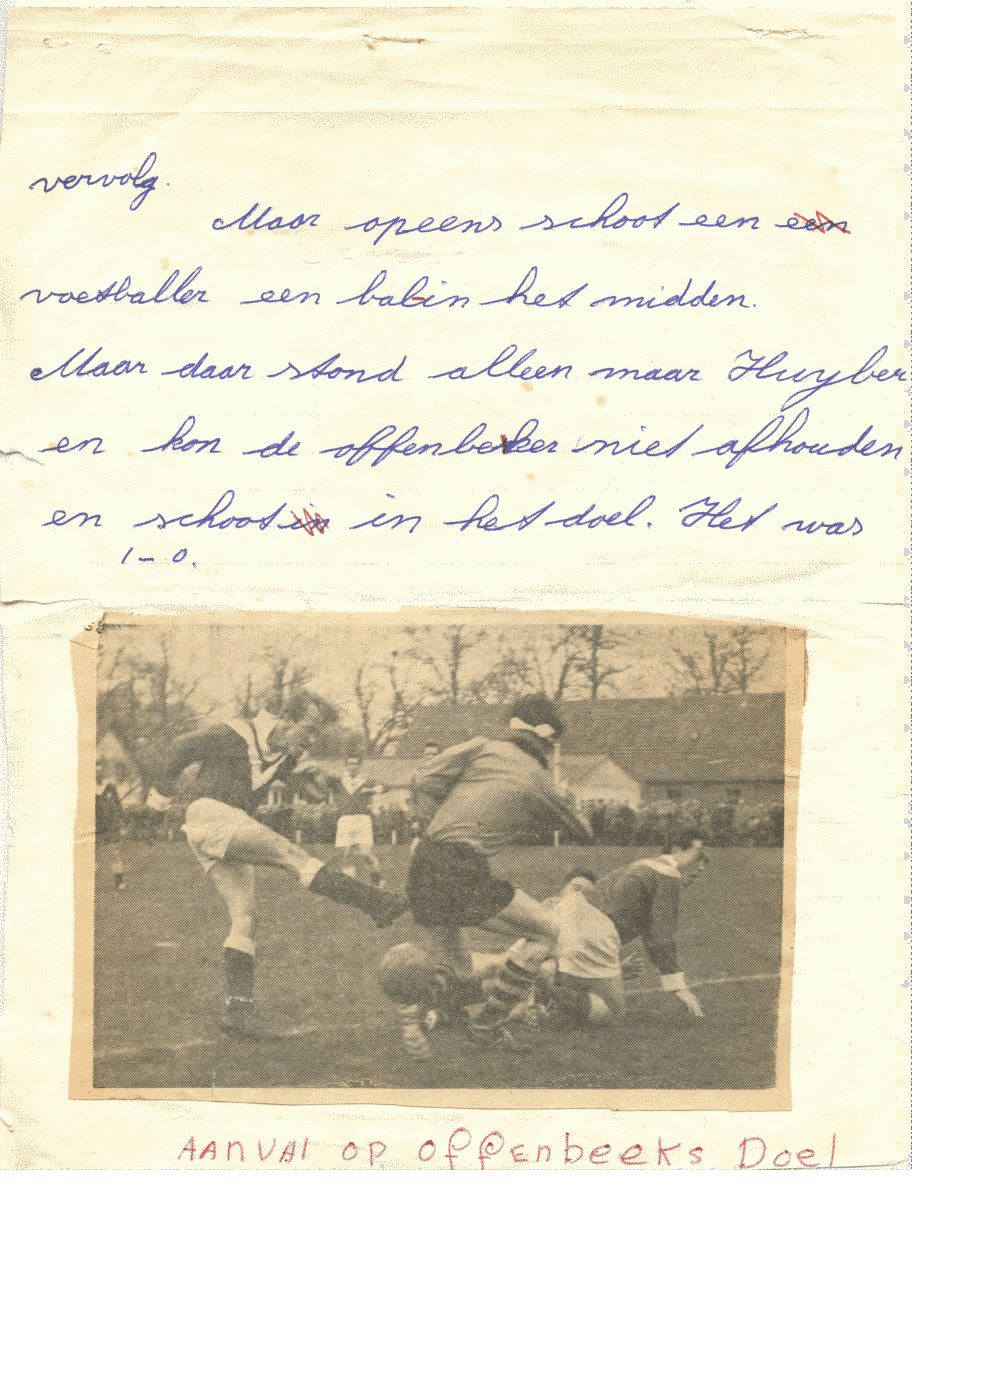 vervolg.
Maar opeens schoot een een
voetballer een bal in het midden.
Maar daar stond alleen maar Huyber
en kon de offenbeker niet afhouden
en schoot in in het doel. Het was
1-0.
AANVAl op offenbeeks Doel